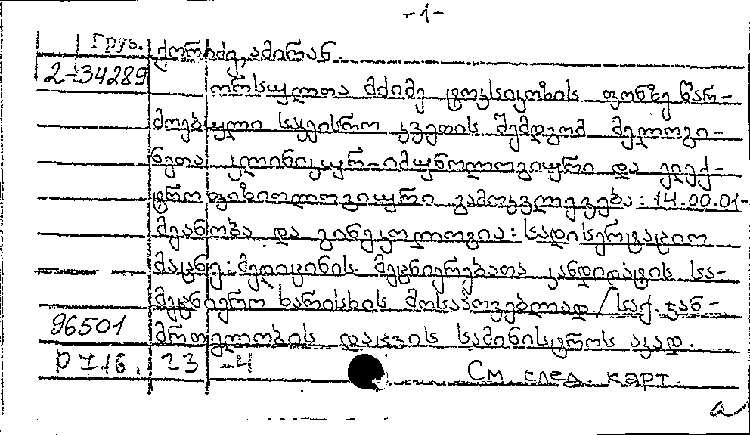 -1-
Груз. ქორიძე, ამირან.
2-34289
ორსულთა მძიმე ტოქსიკოზის ფონზე წარ-
მოებული საკეისრო კვეთის შემდგომ მელოგი-
ნეთა კლინიკურ-იმუნოლოგიური და ელექ-
ტროფიზიოლოგიური გამოკვლევები: 14.00.01-
მეანობა და გინეკოლოგია: სადისერტაციო
მაცნე: მედიცინის მეცნიერებათა კანდიდატის სა-
მეცნიერო ხარისხის მოსაპოვებლად /საქ. ჯან-
96501 მრთელობის დაცვის სამინისტროს აკად.
P 716. 23 -4 См. след. карт.
а